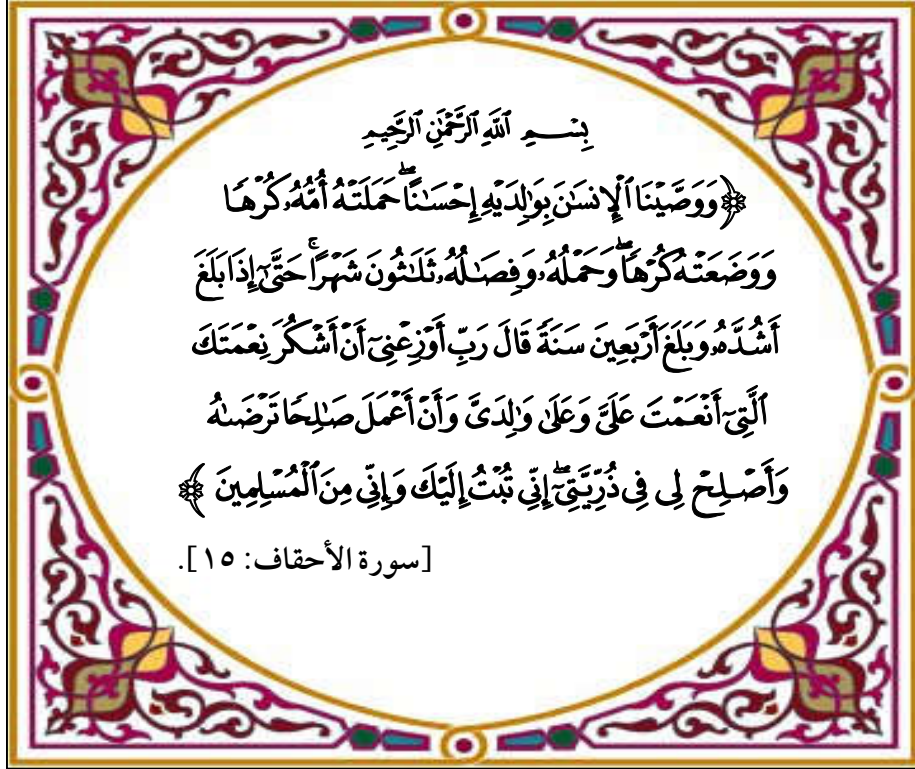 بِسْمِ ٱللَّهِ ٱلرَّحْمَٰنِ ٱلرَّحِيمِ
﴿وَوَصَّيْنَا ٱلْإِنسَٰنَ بِوَٰلِدَيْهِ إِحْسَٰنًا ۖ حَمَلَتْهُ أُمُّهُۥ كُرْهًا
وَوَضَعَتْهُ كُرْهًا ۖ وَحَمْلُهُۥ وَفِصَٰلُهُۥ ثَلَٰثُونَ شَهْرًا ۚ حَتَّىٰٓ إِذَا بَلَغَ
أَشُدَّهُۥ وَبَلَغَ أَرْبَعِينَ سَنَةً قَالَ رَبِّ أَوْزِعْنِىٓ أَنْ أَشْكُرَ نِعْمَتَكَ
ٱلَّتِىٓ أَنْعَمْتَ عَلَىَّ وَعَلَىٰ وَٰلِدَىَّ وَأَنْ أَعْمَلَ صَٰلِحًا تَرْضَىٰهُ
وَأَصْلِحْ لِى فِى ذُرِّيَّتِىٓ ۖ إِنِّى تُبْتُ إِلَيْكَ وَإِنِّى مِنَ ٱلْمُسْلِمِينَ﴾
[سورة الأحقاف: ١٥].